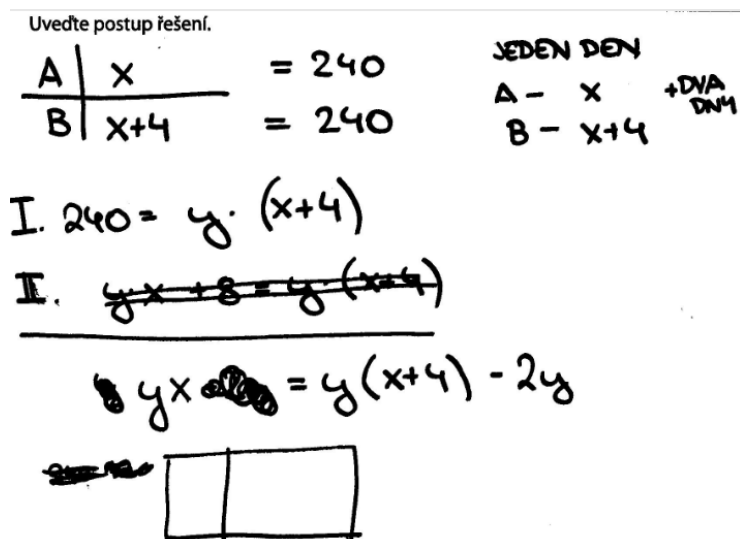 Uveďte postup řešení.
A | x = 240
B | x+4 = 240
JEDEN DEN
A - x +DVA DNY
B - x+4
I. 240 = y · (x+4)
II. y·x +8 = y·(x+4)
yx = y(x+4) - 2y